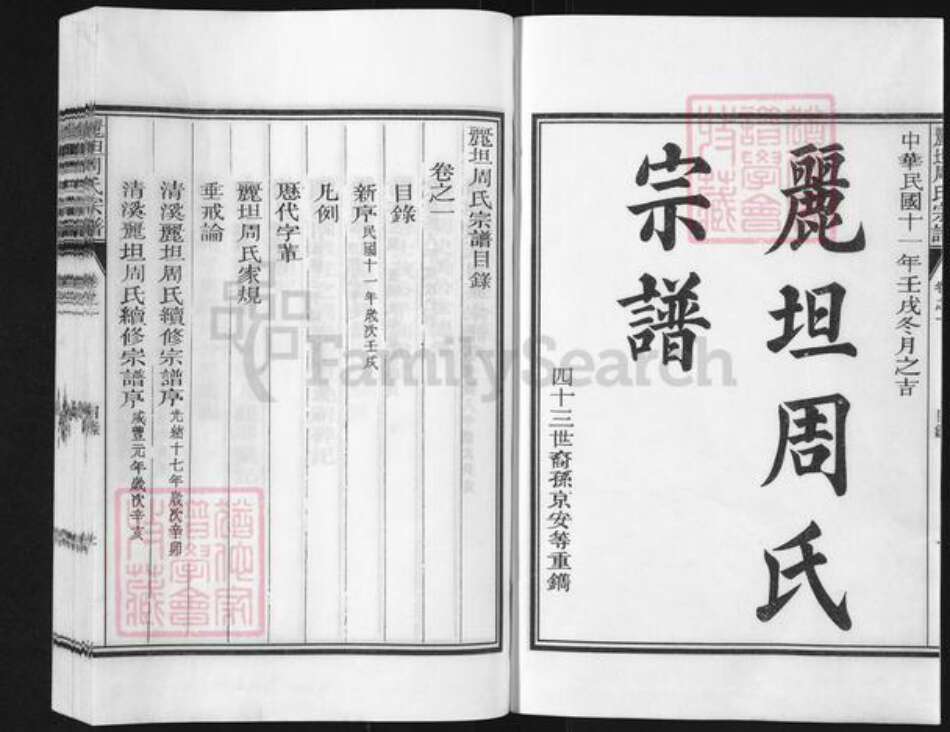 中華民國十一年壬戌冬月之吉
麗坦周氏
宗譜
四十三世裔孫京安等重鐫
麗坦周氏宗譜目錄
卷之一
目錄
新序民國十一年歲次壬戌
凡例
歷代字輩
麗坦周氏家規
垂戒論
清溪麗坦周氏續修宗譜序光緒十七年歲次辛卯
清溪麗坦周氏續修宗譜序咸豐元年歲次辛亥
麗坦周氏宗譜
FamilySearch